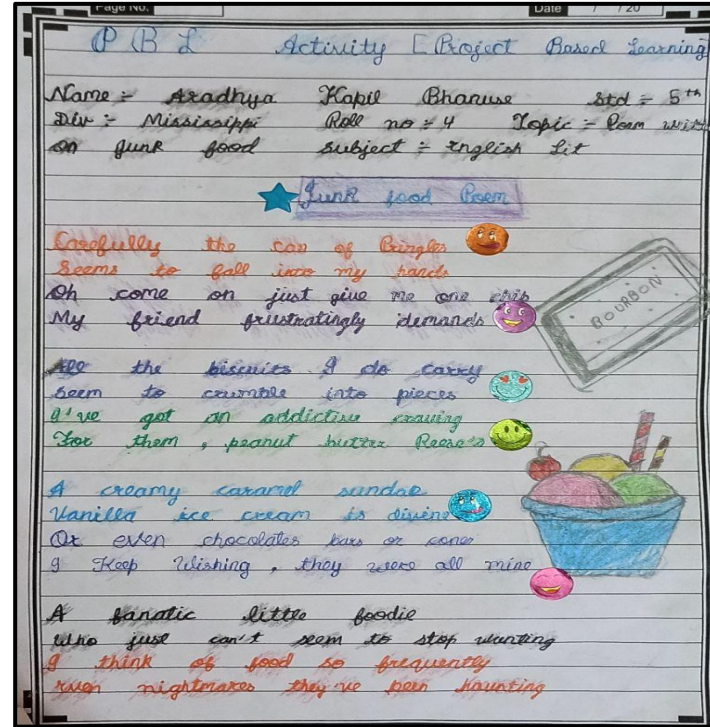 Page No.
Date / / 20
P B L Activity [Project Based Learning
Name :- Aradhya Kapil Bhanuse Std :- 5th
Div :- Mississippi Roll no :- 4 Topic :- Poem writ
on junk food subject :- English Lit
Junk food Poem
Carefully the can of Pringles
Seems to fall into my hands
Oh come on just give me one chip
My friend frustratingly demands
BOURBON
All the biscuits I do carry
Seem to crumble into pieces
I've got an addictive craving
For them, peanut butter Reese's
A creamy caramel sundae
Vanilla ice cream is divine
Or even chocolates bars or cones
I Keep Wishing, they were all mine
A fanatic little foodie
Who just can't seem to stop wanting
I think of food so frequently
Even nightmares they've been haunting